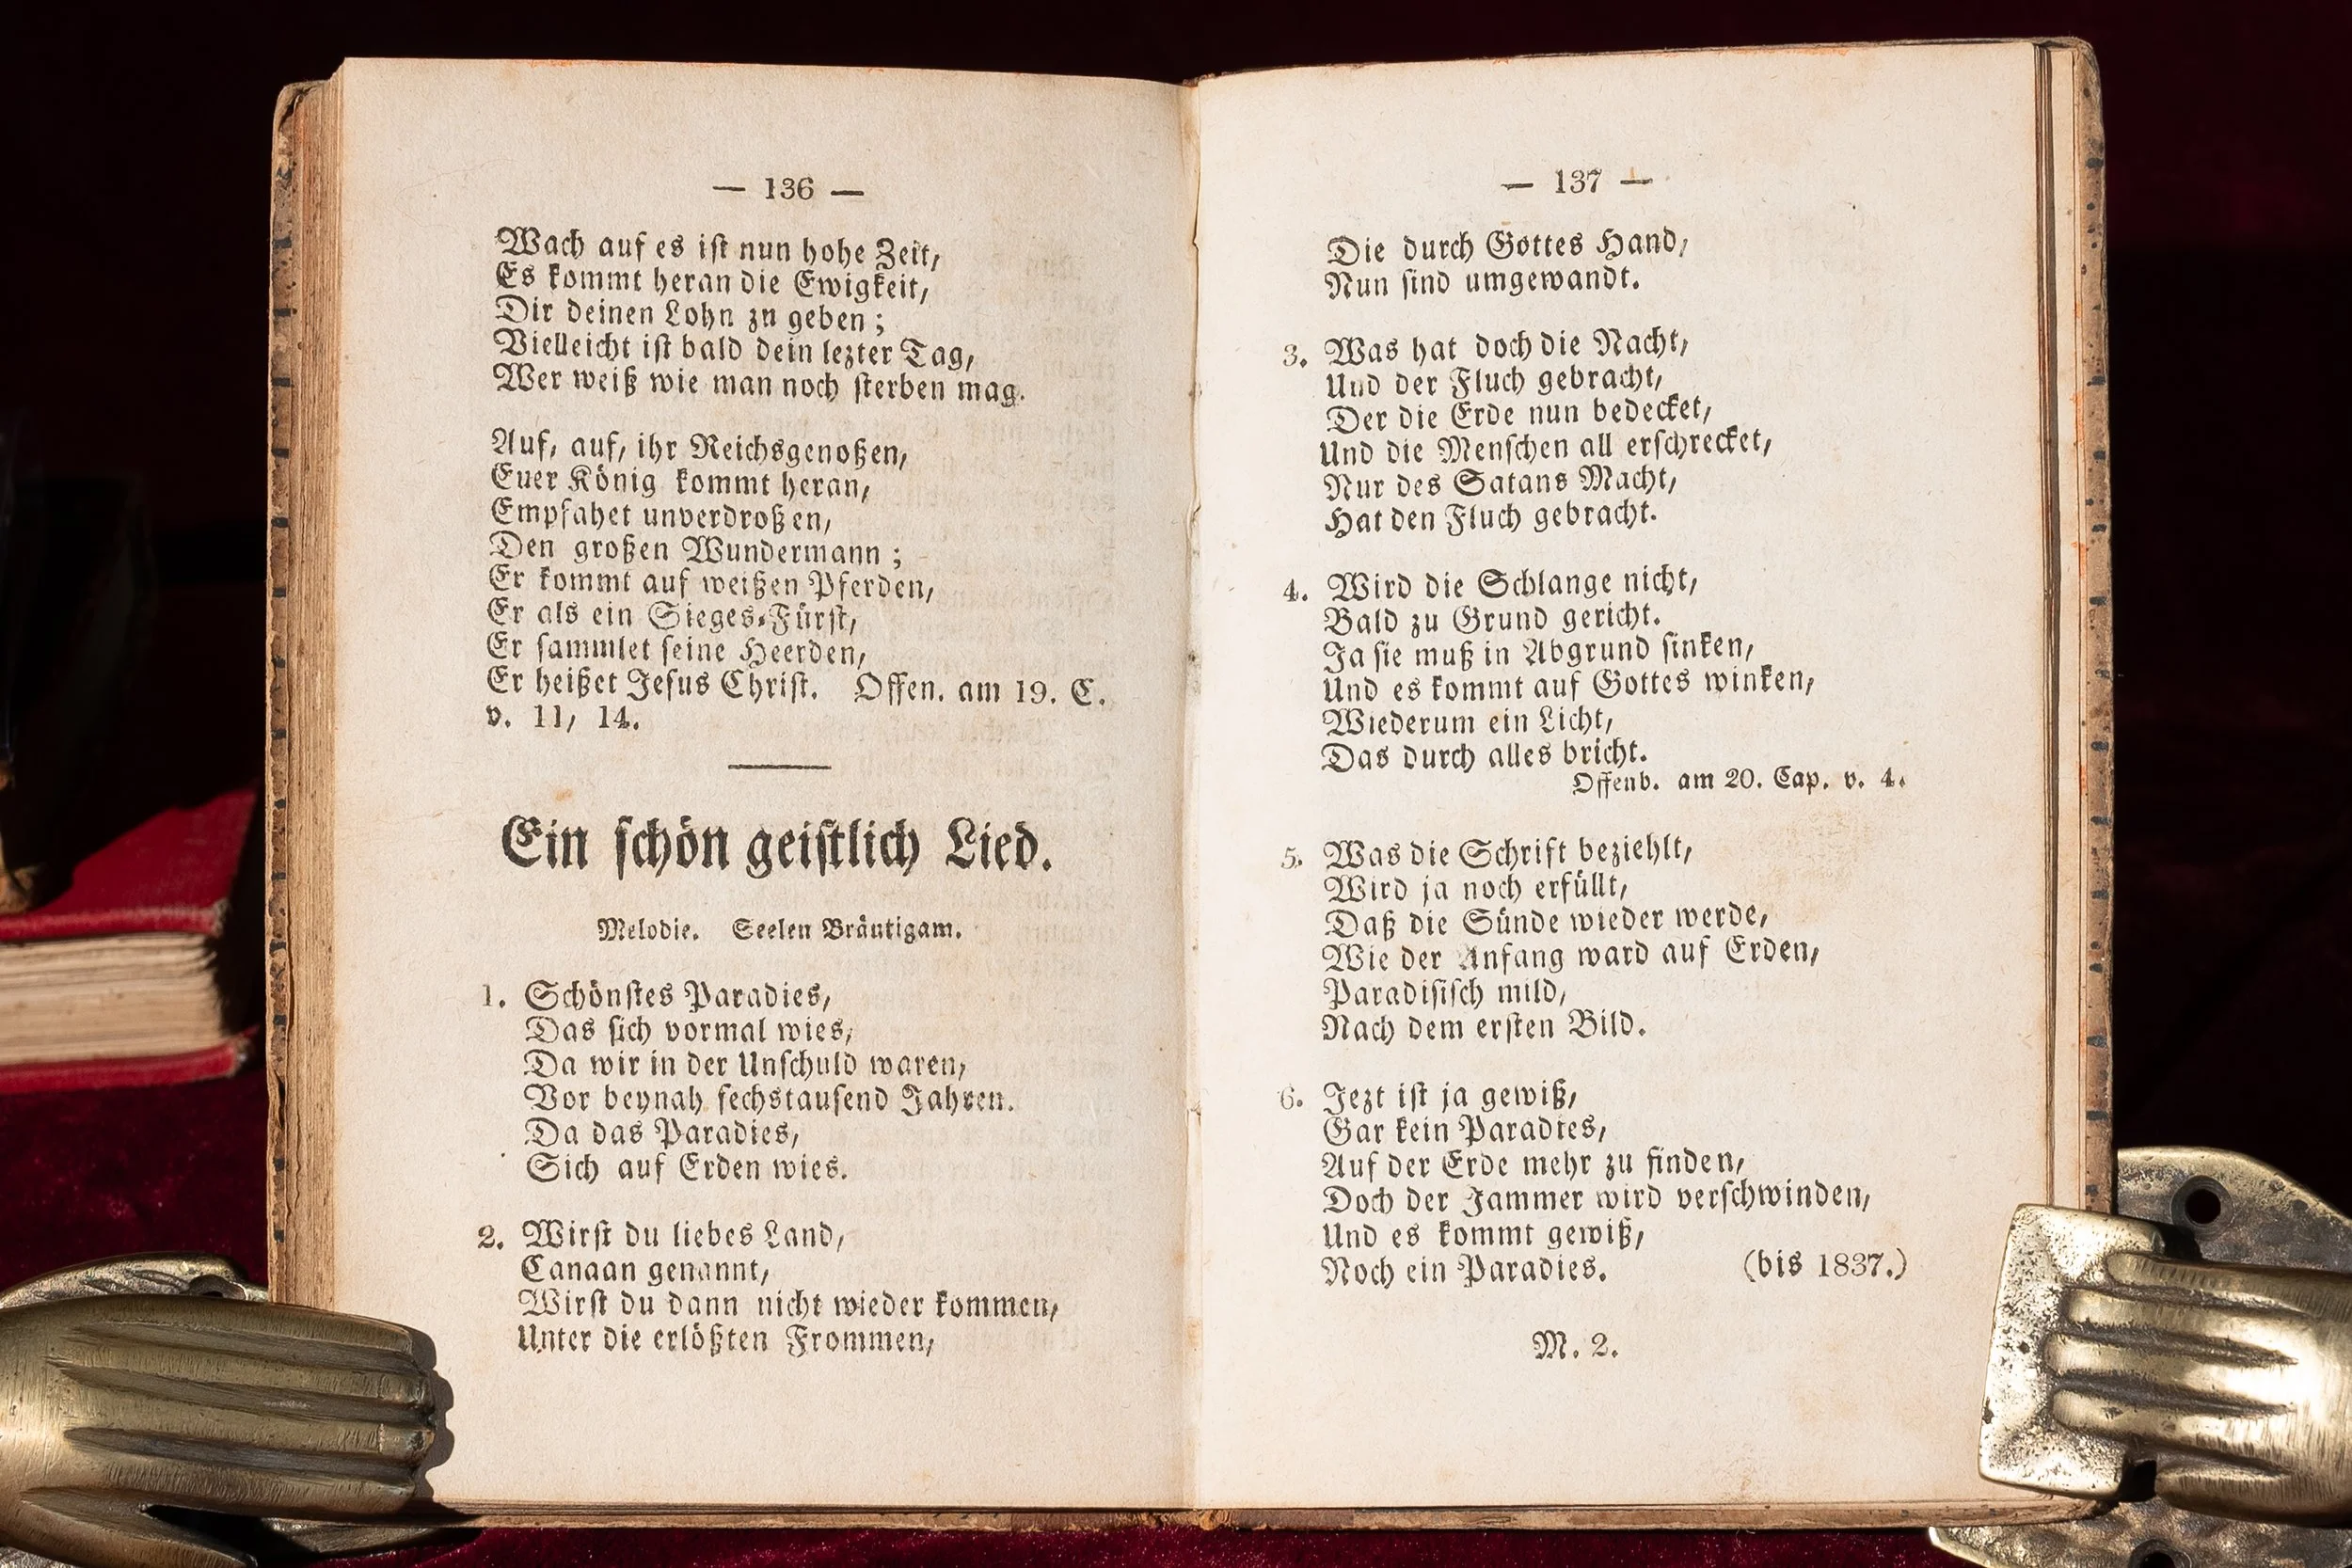 — 136 —
Wach auf es ist nun hohe Zeit,
Es kommt heran die Ewigkeit,
Dir deinen Lohn zu geben ;
Vielleicht ist bald dein lezter Tag,
Wer weiß wie man noch sterben mag.
Auf, auf, ihr Reichsgenoßen,
Euer König kommt heran,
Empfahet unverdroßen,
Den großen Wundermann ;
Er kommt auf weißen Pferden,
Er als ein Sieges-Fürst,
Er sammlet seine Heerden,
Er heißet Jesus Christ. Offen. am 19. C.
v. 11, 14.
Ein schön geistlich Lied.
Melodie. Seelen Bräutigam.
1. Schönstes Paradies,
Das sich vormal wies,
Da wir in der Unschuld waren,
Vor beynah sechstausend Jahren.
Da das Paradies,
Sich auf Erden wies.
2. Wirst du liebes Land,
Canaan genannt,
Wirst du dann nicht wieder kommen,
Unter die erlößten Frommen,
— 137 —
Die durch Gottes Hand,
Nun sind umgewandt.
3. Was hat doch die Nacht,
Und der Fluch gebracht,
Der die Erde nun bedecket,
Und die Menschen all erschrecket,
Nur des Satans Macht,
Hat den Fluch gebracht.
4. Wird die Schlange nicht,
Bald zu Grund gericht.
Ja sie muß in Abgrund sinken,
Und es kommt auf Gottes winken,
Wiederum ein Licht,
Das durch alles bricht.
Offenb. am 20. Cap. v. 4.
5. Was die Schrift beziehlt,
Wird ja noch erfüllt,
Daß die Sünde wieder werde,
Wie der Anfang ward auf Erden,
Paradisisch mild,
Nach dem ersten Bild.
6. Jezt ist ja gewiß,
Gar kein Paradies,
Auf der Erde mehr zu finden,
Doch der Jammer wird verschwinden,
Und es kommt gewiß,
Noch ein Paradies. (bis 1837.)
M. 2.